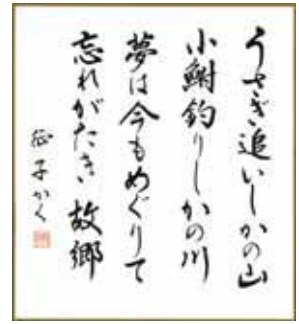 うさぎ追いしかの山
小鮒釣りしかの川
夢は今もめぐりて
忘れがたき故郷